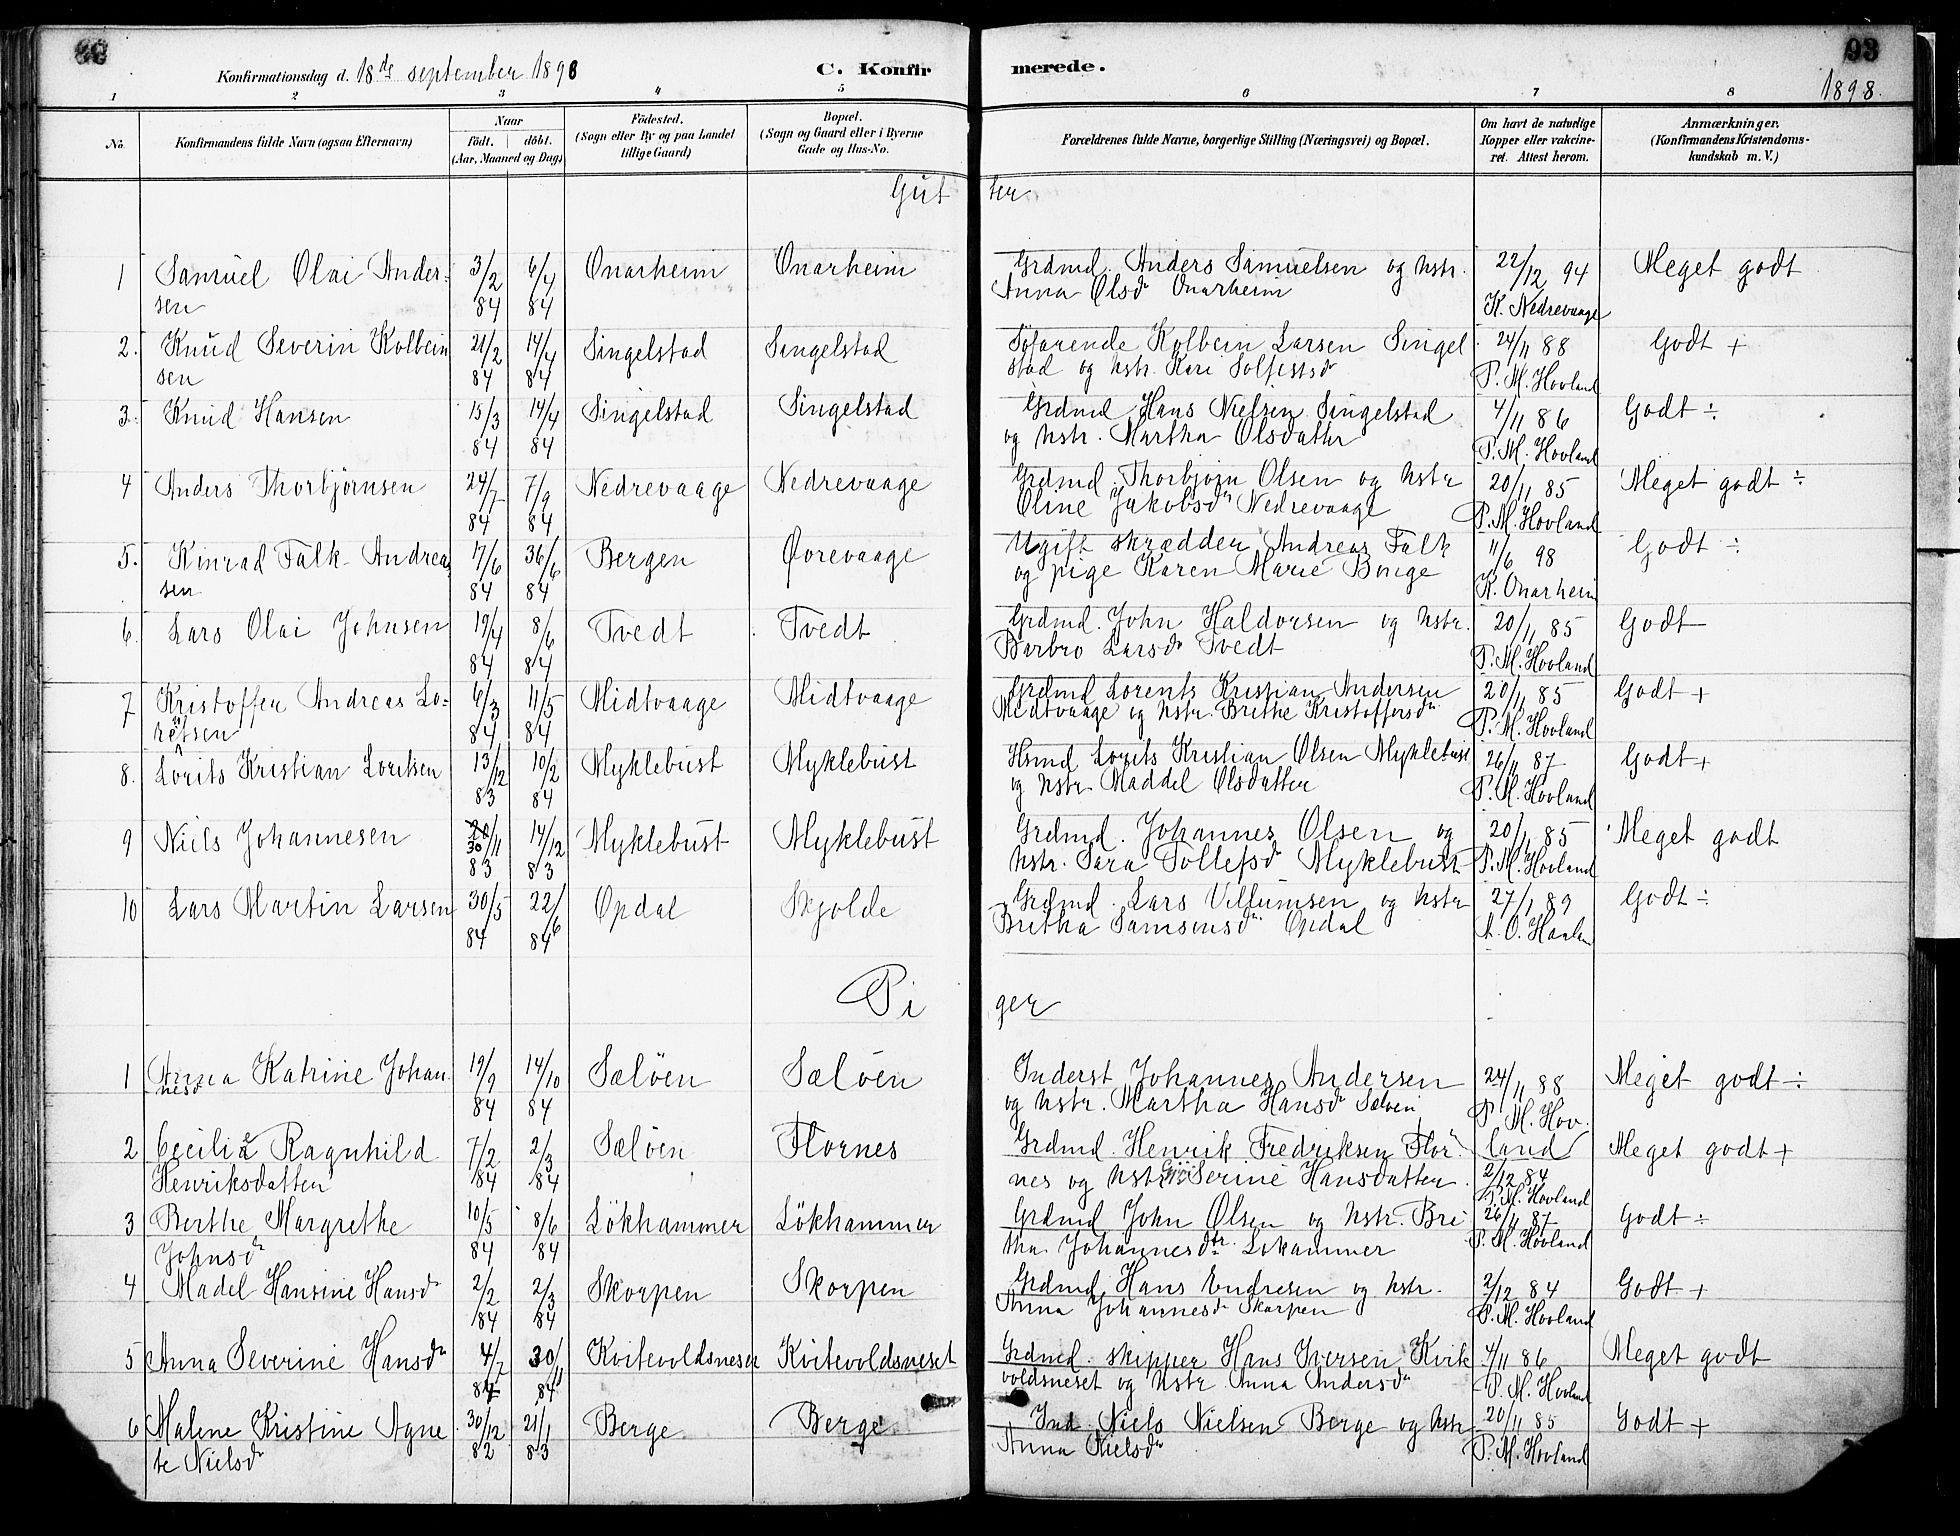 93
Konfirmationsdag d. 18de september 1898 C. Konfir merede.
1898.
1 2 3 4 5 6 7 8
No. Konfirmandens fulde Navn (ogsaa Efternavn) Naar født. døbt. (Aar, Maaned og Dag) Fødested. (Sogn eller By og paa Landet tillige Gaard) Bopæl. (Sogn og Gaard eller i Byerne Gade og Hus-No. Forældrenes fulde Navne, borgerlige Stilling (Næringsvei) og Bopæl. Om havt de naturlige Kopper eller vakcineret. Attest herom. Anmærkninger. (Konfirmandens Kristendomskundskab m. V.)
Gut ter
1 Samuel Olai Ander- 3/2 6/4 Onarheim Onarheim Grdmd. Anders Samuelsen og hstr. 22/12 94 Meget godt
sen 84 84 Anna Olsdr Onarheim K. Nedrevaage
2. Knud Severin Kolbein 21/2 14/4 Singelstad Singelstad Søfarende Kolbein Larsen Singel 24/11 88 Godt +
sen 84 84 stad og hstr. Kari Solfestsdr P. M. Hovland
3. Knud Hansen 15/3 14/4 Singelstad Singelstad Grdmd Hans Nielsen Singelstad 4/11 86 Godt ÷
84 84 og hstr. Martha Olsdatter P. M. Hovland
4 Anders Thorbjørnsen 24/7 7/9 Nedrevaage Nedrevaage Grdmd. Thorbjørn Olsen og hstr 20/11 85 Meget godt ÷
84 84 Oline Jakobsdr Nedrevaage P. M. Hovland
5. Konrad Falk Andrea 17/6 36/6 Bergen Øvrevaage Ugift skrædder Andreas Falk 11/6 98 Godt ÷
sen 84 84 og pige Karen Marie Borge K. Onarheim
6. Lars Olai Johnsen 19/4 8/6 Tvedt Tvedt Grdmd. John Haldorsen og hstr. 20/11 85 Godt
84 84 Barbro Larsdr Tvedt P. M. Hovland
7 Kristoffer Andreas Lo- 6/3 11/5 Midtvaage Midtvaage Grdmd Lorents Kristian Andersen 20/11 85 Godt +
retsen 84 84 Midtvaage og hstr. Brithe Kristoffersdr P. M. Hovland
8. Lorits Kristian Loritsen 13/12 10/2 Myklebust Myklebust Hsmd Lorits Kristian Olsen Myklebust 26/11 87 Godt +
83 84 og hstr Maddel Olsdatter P. M. Hovland
9 Niels Johannesen 30/11 14/12 Myklebust Myklebust Grdmd. Johannes Olsen og 20/11 85 Meget godt
83 83 hstr. Sara Tollefsdr Myklebust P. M. Hovland
10 Lars Martin Larsen 30/5 22/6 Opdal Skjolde Grdmd. Lars Villumsen og hstr 27/1 89 Godt ÷
84 84 Britha Samsonsdr Opdal
Pi ger
1 Anna Katrine Johan 19/9 14/10 Sæløen Sæløen Inderst Johannes Andersen 24/11 88 Meget godt ÷
nesdr 84 84 og hstr. Martha Hansdr Sæløen P. M. Hov.
2 Cecilia Ragnhild 7/2 2/3 Sæløen Flornes Grdmd. Henrik Fredriksen Flor- land Meget godt +
Henriksdatter 84 84 nes og hstr. Serine Hansdatter 2/12 84 P. M. Hovland
3 Berthe Margrethe 10/5 8/6 Løkhammer Løkhammer Grdmd John Olsen og hstr. Bri- 26/11 87 Godt ÷
Johnsdr 84 84 tha Johannesdtr. Løkammer P. M. Hovland
4 Madel Hansine Hansdr 2/2 2/3 Skorpen Skorpen Grdmd. Hans Endresen og hstr. 2/12 84 Godt +
84 84 Anna Johannesdr Skorpen P. M. Hovland
5 Anna Severine Hansdr 4/7 30/ Kvitevoldsneset Kvitevoldsneset Grdmd. skipper Hans Iversen Kvite 4/11 86 Meget godt
84 84 voldsneset og hstr. Anna Andersdr P. M. Hovland
6 Malene Kristine Agne 30/12 21/1 Berge Berge Ind. Niels Nielsen Berge og hstr 20/11 85 Godt +
te Nielsdr 82 83 Anna Nielsdr P. M. Hovland